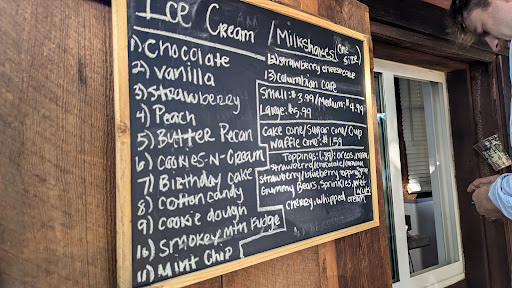 Ice Cream / Milkshakes (one size)
1) Chocolate
2) Vanilla
3) Strawberry
4) Peach
5) Butter Pecan
6) Cookies-N-Cream
7) Birthday Cake
8) Cotton candy
9) Cookie dough
10) Smokey Mtn Fudge
11) Mint Chip
12) Strawberry cheesecake
13) Columbian Cafe
Small: $3.99/Medium: $4.99
Large: $5.99
Cake cone/Sugar cone/Cup
Waffle cone: $1.59
Toppings: (.75): oreos,
strawberry/chocolate/caramel
Strawberry/blueberry topping
Gummy Bears, Sprinkles, wet nuts
cherry, whipped cream